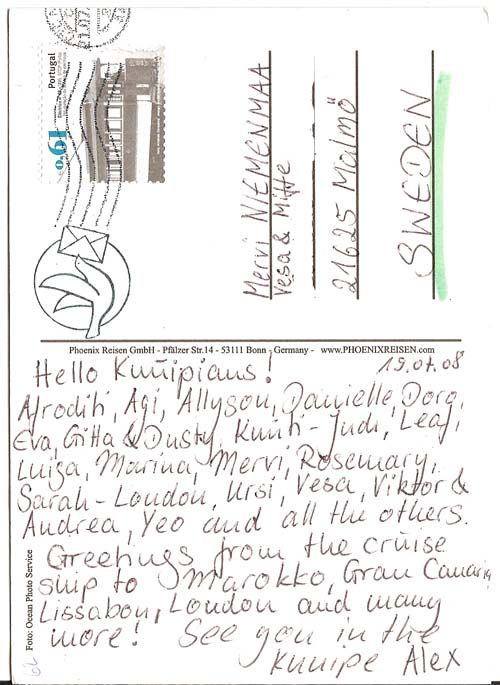 Portugal
0,61
Mervi NIEMENMAA
Vesa & Mitte
21625 Malmö
SWEDEN
Phoenix Reisen GmbH - Pfälzer Str.14 - 53111 Bonn - Germany - www.PHOENIXREISEN.com
19.07.08
Hello Knuipians!
Afroditi, Agi, Allyson, Danielle, Dora,
Eva, Gitta & Dusty, Kunti-Judi, Leaf,
Luiza, Marina, Mervi, Rosemary,
Sarah-London, Ursi, Vesa, Viktor &
Andrea, Yeo and all the others.
Greetings from the cruise
ship to Marokko, Gran Canaria
Lissabon, London and many
more! See you in the
Knuipe Alex
Foto: Ocean Photo Service